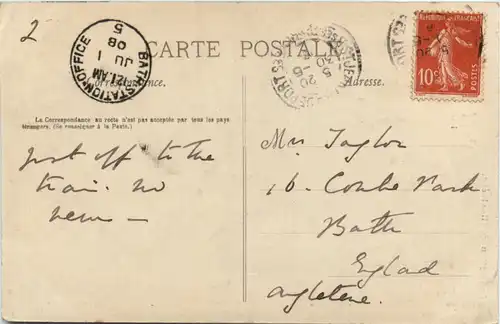 2
CARTE POSTALE
BATH STATION OFFICE
JU 1
08
12 LAM
5
Correspondance.
Adresse.
REPUBLIQUE FRANÇAISE
10c
POSTES
La Correspondance au recto n'est pas acceptée par tous les pays
étrangers. (Se renseigner à la Poste.)
just off to the
train. no
news —
Mrs Taylor
16. Combe Park
Bath
England
Angleterre.